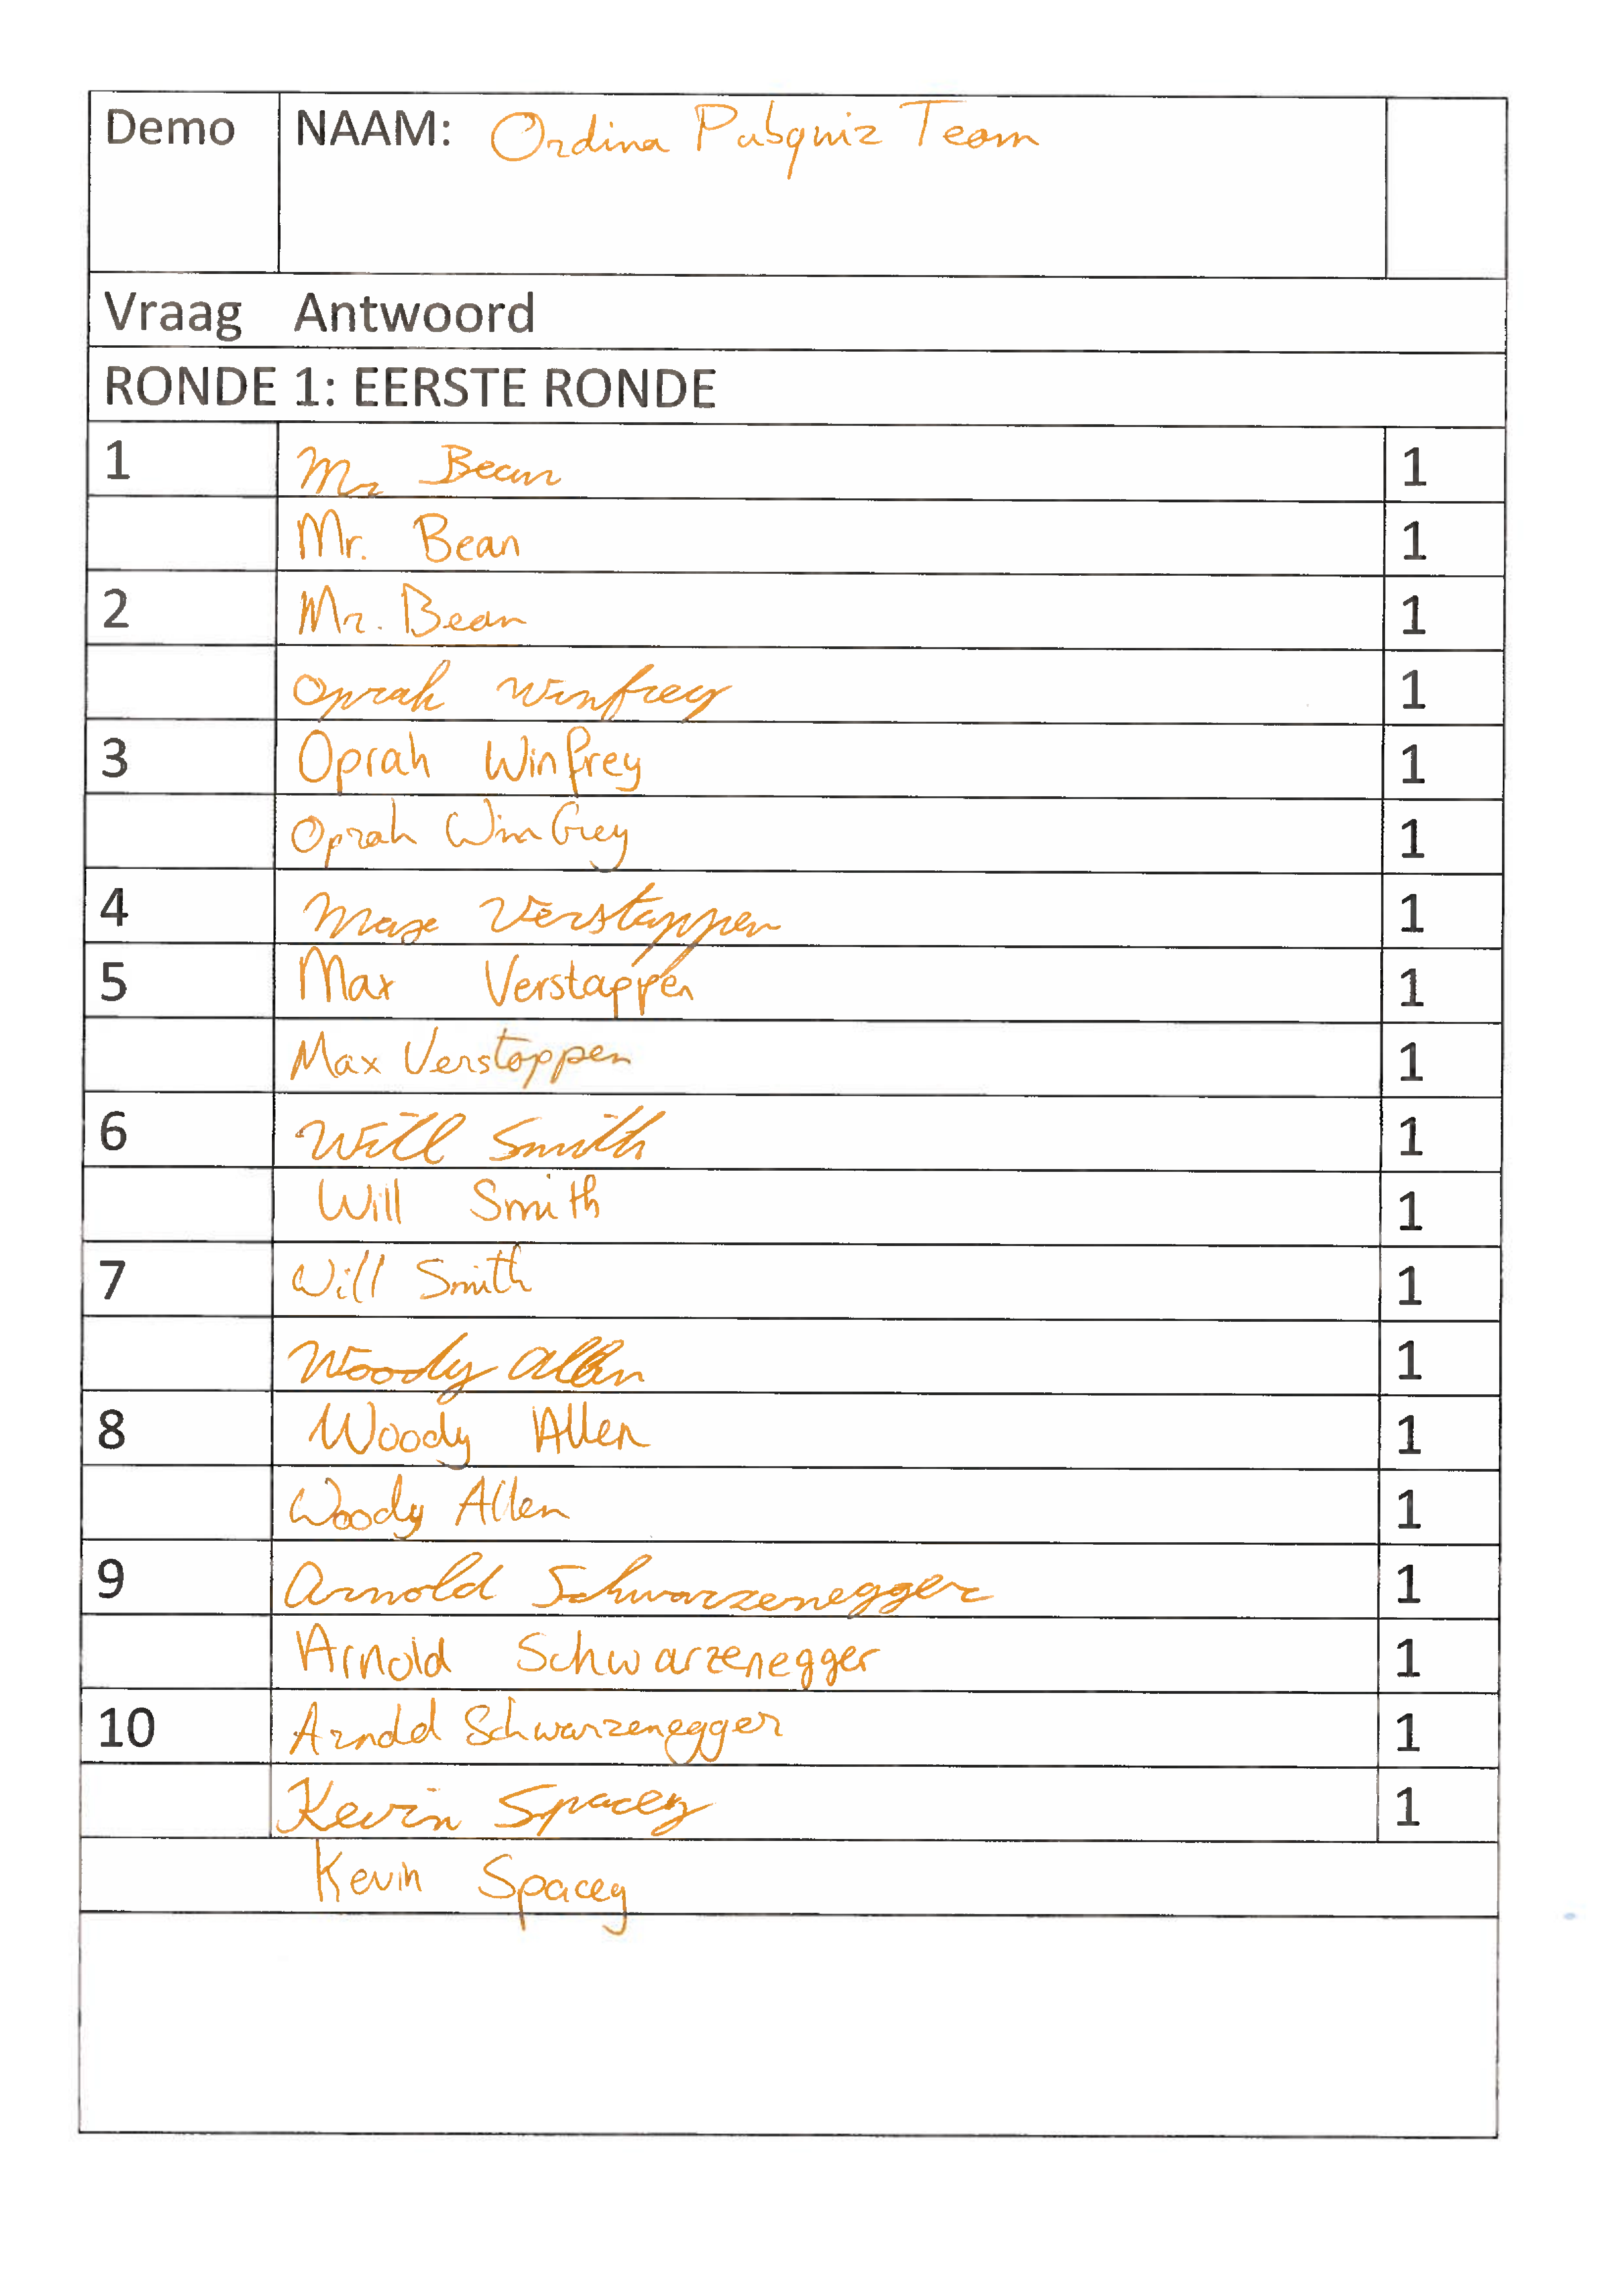 Demo NAAM: Ordina Pubquiz Team
Vraag Antwoord
RONDE 1: EERSTE RONDE
1 Mr Bean 1
Mr. Bean 1
2 Mr. Bean 1
Oprah Winfrey 1
3 Oprah Winfrey 1
Oprah Winfrey 1
4 Max Verstappen 1
5 Max Verstappen 1
Max Verstappen 1
6 Will Smith 1
Will Smith 1
7 Will Smith 1
Woody Allen 1
8 Woody Allen 1
Woody Allen 1
9 Arnold Schwarzenegger 1
Arnold Schwarzenegger 1
10 Arnold Schwarzenegger 1
Kevin Spacey 1
Kevin Spacey